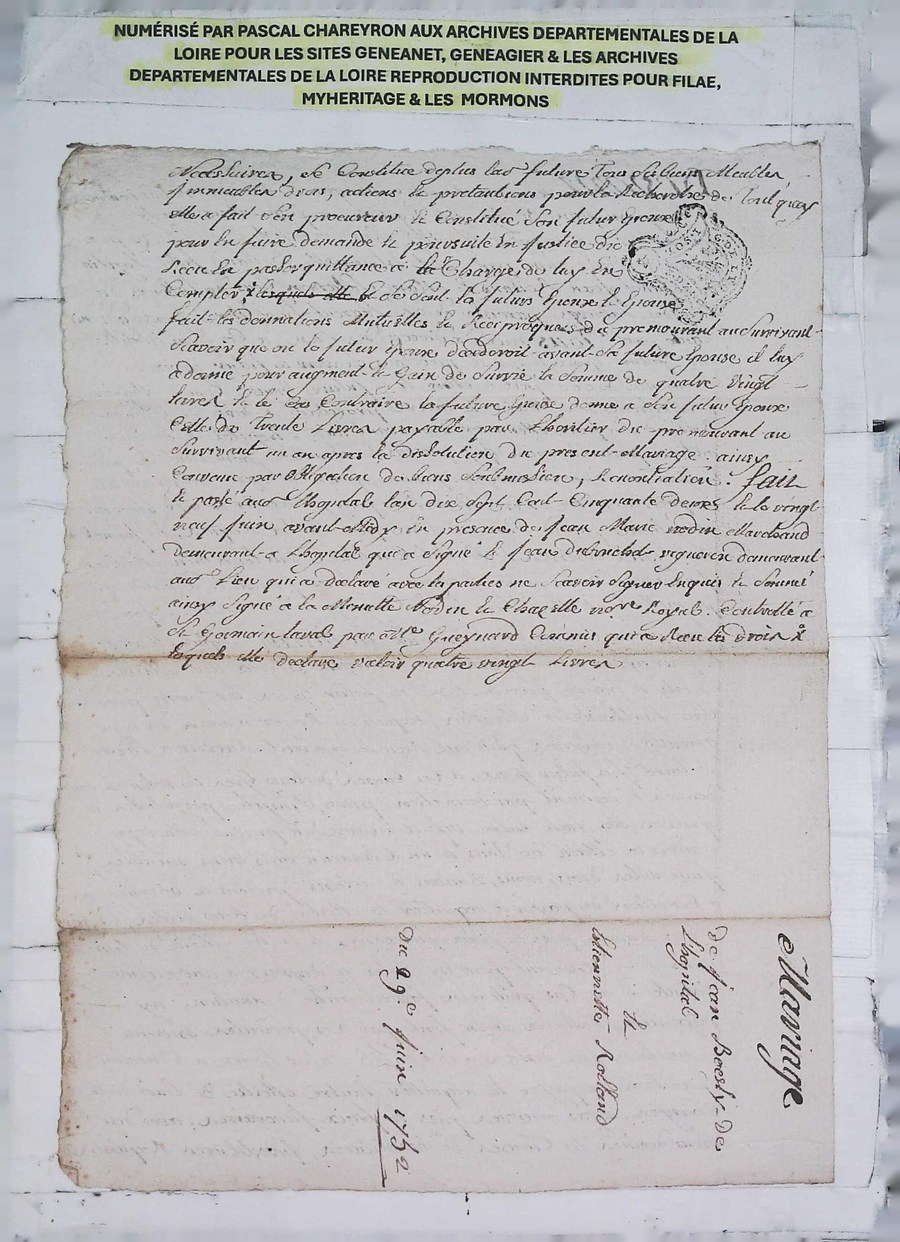 NUMÉRISÉ PAR PASCAL CHAREYRON AUX ARCHIVES DEPARTEMENTALES DE LA
LOIRE POUR LES SITES GENEANET, GENEAGIER & LES ARCHIVES
DEPARTEMENTALES DE LA LOIRE REPRODUCTION INTERDITES POUR FILAE,
MYHERITAGE & LES MORMONS
se Constitue deplus lad. future Tous Meubles
Immeubles droits, actions et pretentions pour la Recherche de
elle a fait Son procureur et Constitué Son futur Epoux
pour En faire demande et poursuite En justice du
Receu En passer quittance a la Charge de luy En
Compter lesquels elle se sont les futurs Epoux et Epouse
fait les donnations Mutuelles et Reciproques du premourant au Survivant
Scavoir que ou le futur Epoux avant Sa future Epouse il luy
a donné pour augment et Gain de Survie la Somme de quatre vingt
livres et le Cas Contraire la future Epouse donne a Son futur Epoux
Celle de Trente Livres payable par L'heritier du premourant au
Survivant un an apres la dissolution du present Mariage. ainsy
Convenu par obligation de biens Soumission, Renonciation. fait
et passé aud. L'hopital lan dix Sept Cent Cinquante deux et le vingt
neuf Juin avant Midy En presence de Jean Marie Marchand
demeurant a Lhopital qui a Signé et Jean vigneron demeurant
aud. Lieu qui a declaré avec les parties ne Scavoir Signer Enquis et Sommé
ainsy Signé a la Minutte et Chapelle no.re Royal. Controllé a
St Germain laval par Gueynard qui a Receu les droits
lesquels elle declare valoir quatre vingt Livres
Mariage
de Jean de
Lhopital
et
Etiennette Rolland
du 29.e Juin 1752